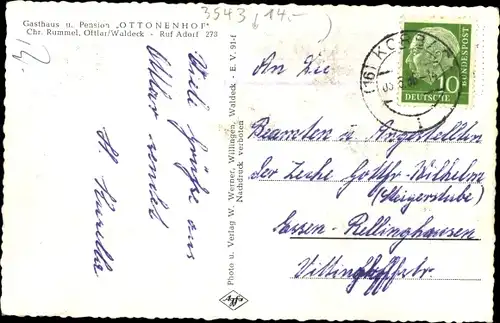 Gasthaus u. Pension „OTTONENHOF"
Chr. Rummel, Ottlar/Waldeck - Ruf Adorf 273
3543 / 14.-
Viele Grüße aus
Ottlar sendet
H.
Photo u. Verlag W. Werner, Willingen, Waldeck - E. V. 91-f
Nachdruck verboten
An Die
Beamten u Angestellten
der Zeche Gottfr-Wilhelm
(Steigerstube)
Essen-Rellinghausen
(16)
10
DEUTSCHE
BUNDESPOST